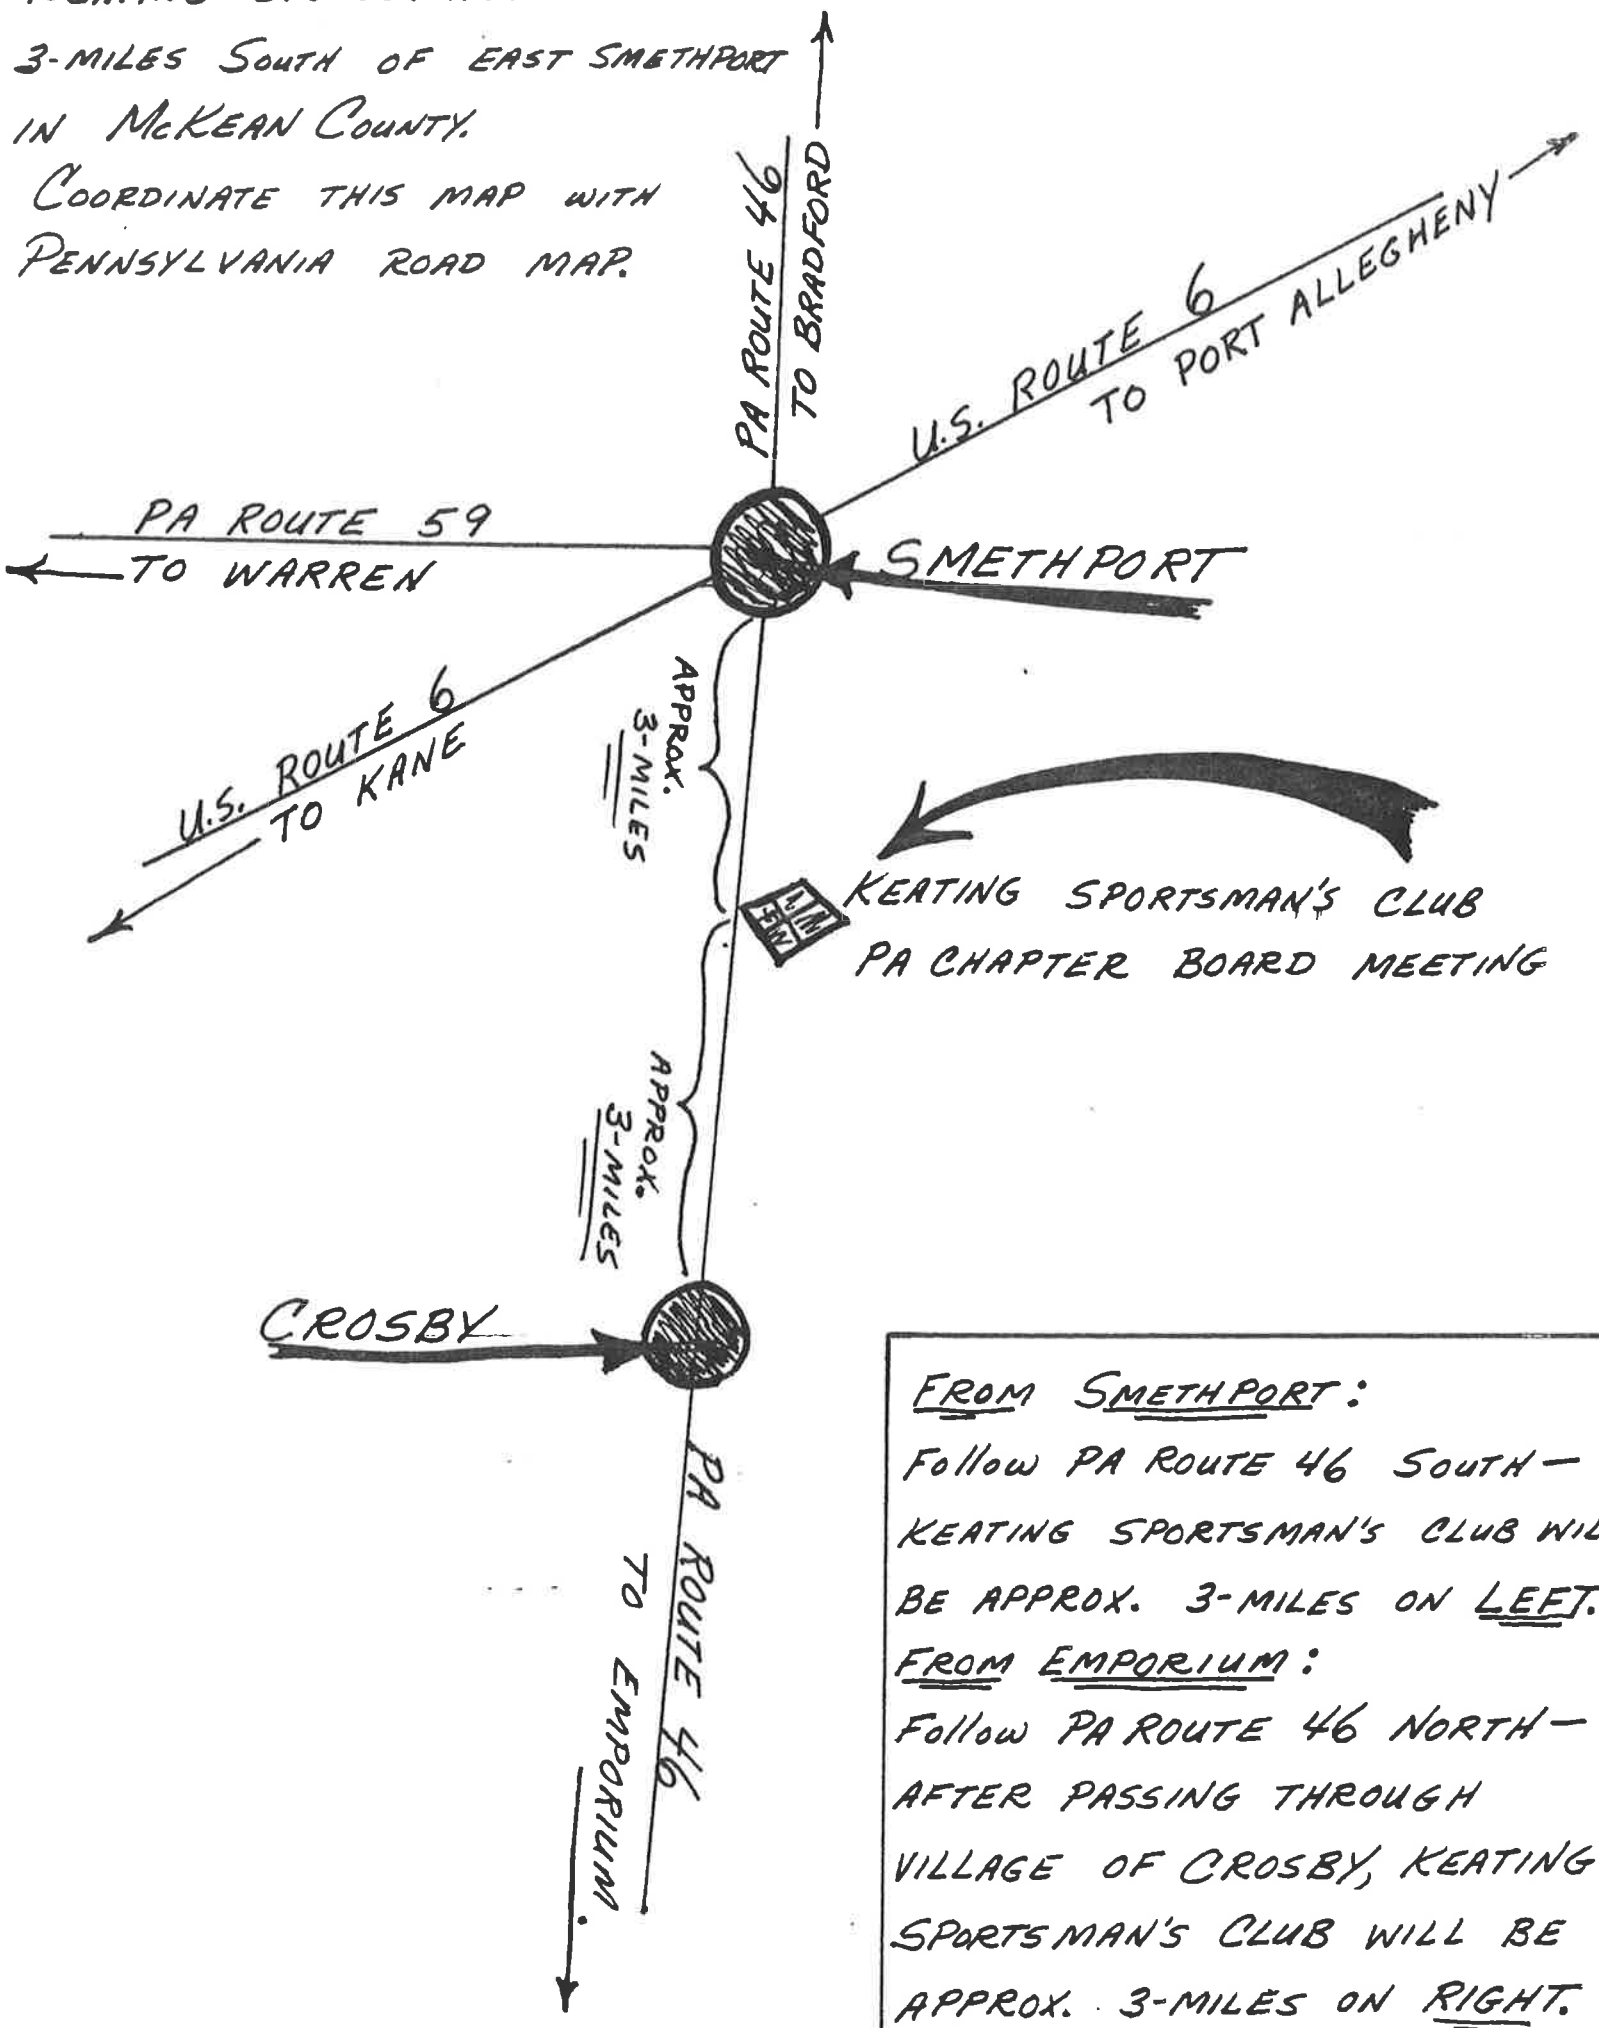 3-MILES SOUTH OF EAST SMETHPORT
IN McKEAN COUNTY.
COORDINATE THIS MAP WITH
PENNSYLVANIA ROAD MAP.
PA ROUTE 46
TO BRADFORD
U.S. ROUTE 6
TO PORT ALLEGHENY
PA ROUTE 59
TO WARREN
SMETHPORT
U.S. ROUTE 6
TO KANE
APPROX.
3-MILES
KEATING SPORTSMAN'S CLUB
PA CHAPTER BOARD MEETING
APPROX.
3-MILES
CROSBY
PA ROUTE 46
TO EMPORIUM.
FROM SMETHPORT:
Follow PA ROUTE 46 SOUTH—
KEATING SPORTSMAN'S CLUB
BE APPROX. 3-MILES ON LEFT.
FROM EMPORIUM:
Follow PA ROUTE 46 NORTH—
AFTER PASSING THROUGH
VILLAGE OF CROSBY, KEATING
SPORTSMAN'S CLUB WILL BE
APPROX. 3-MILES ON RIGHT.